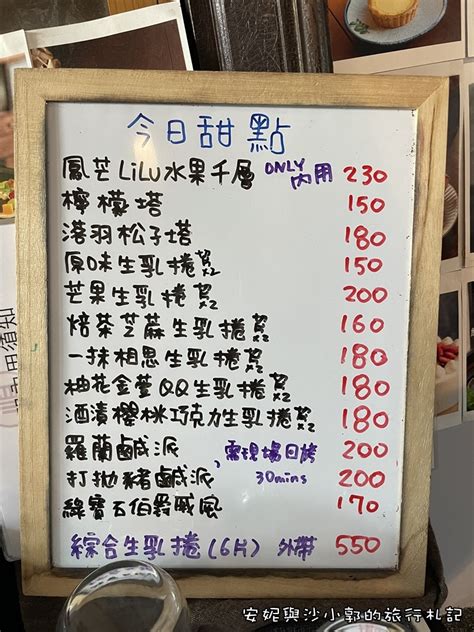 今日甜點
鳳芒LiLu水果千層 ONLY內用 230
檸檬塔 150
落羽松子塔 180
原味生乳捲 x2 150
芒果生乳捲 x2 200
焙茶芝麻生乳捲 x2 160
一抹相思生乳捲 x2 180
柚花金萱QQ生乳捲 x2 180
酒漬櫻桃巧克力生乳捲 x2 180
羅蘭鹹派 需現場回烤 200
打拋豬鹹派 30mins 200
綠寶石伯爵戚風 170
綜合生乳捲(6片) 外帶 550
安妮與沙小郭的旅行札記